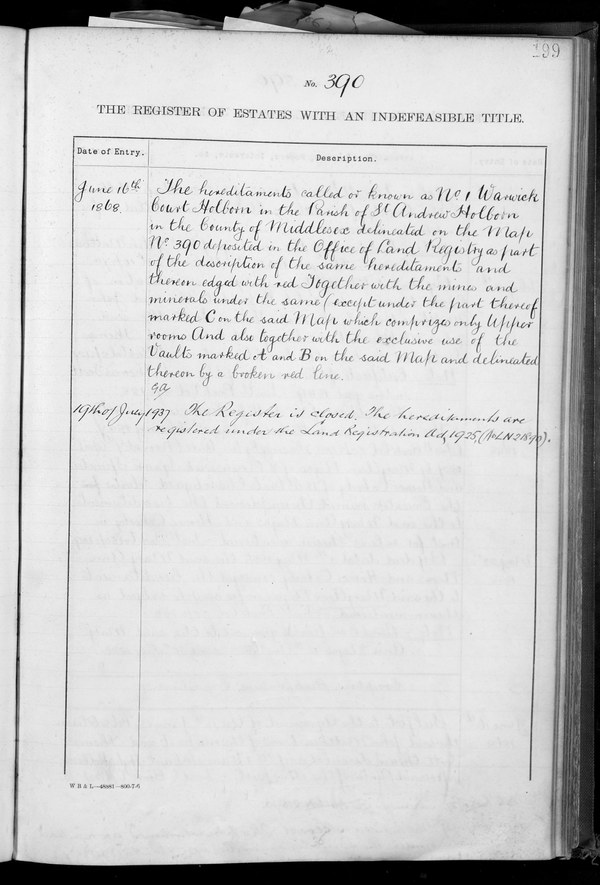 199
No. 390
THE REGISTER OF ESTATES WITH AN INDEFEASIBLE TITLE.
Date of Entry.
Description.
June 16th
1868.
The hereditaments called or known as No. 1 Warwick
Court Holborn in the Parish of St Andrew Holborn
in the County of Middlesex delineated on the Map
No. 390 deposited in the Office of Land Registry as part
of the description of the same hereditaments and
thereon edged with red Together with the mines and
minerals under the same (except under the part thereof
marked C on the said Map which comprizes only Upper
rooms And also together with the exclusive use of the
Vaults marked A and B on the said Map and delineated
thereon by a broken red line.
19th of July 1937. The Register is closed. The hereditaments are
registered under the Land Registration Act, 1925, (No. LN 21890).
W B & L—48881—800-7-6